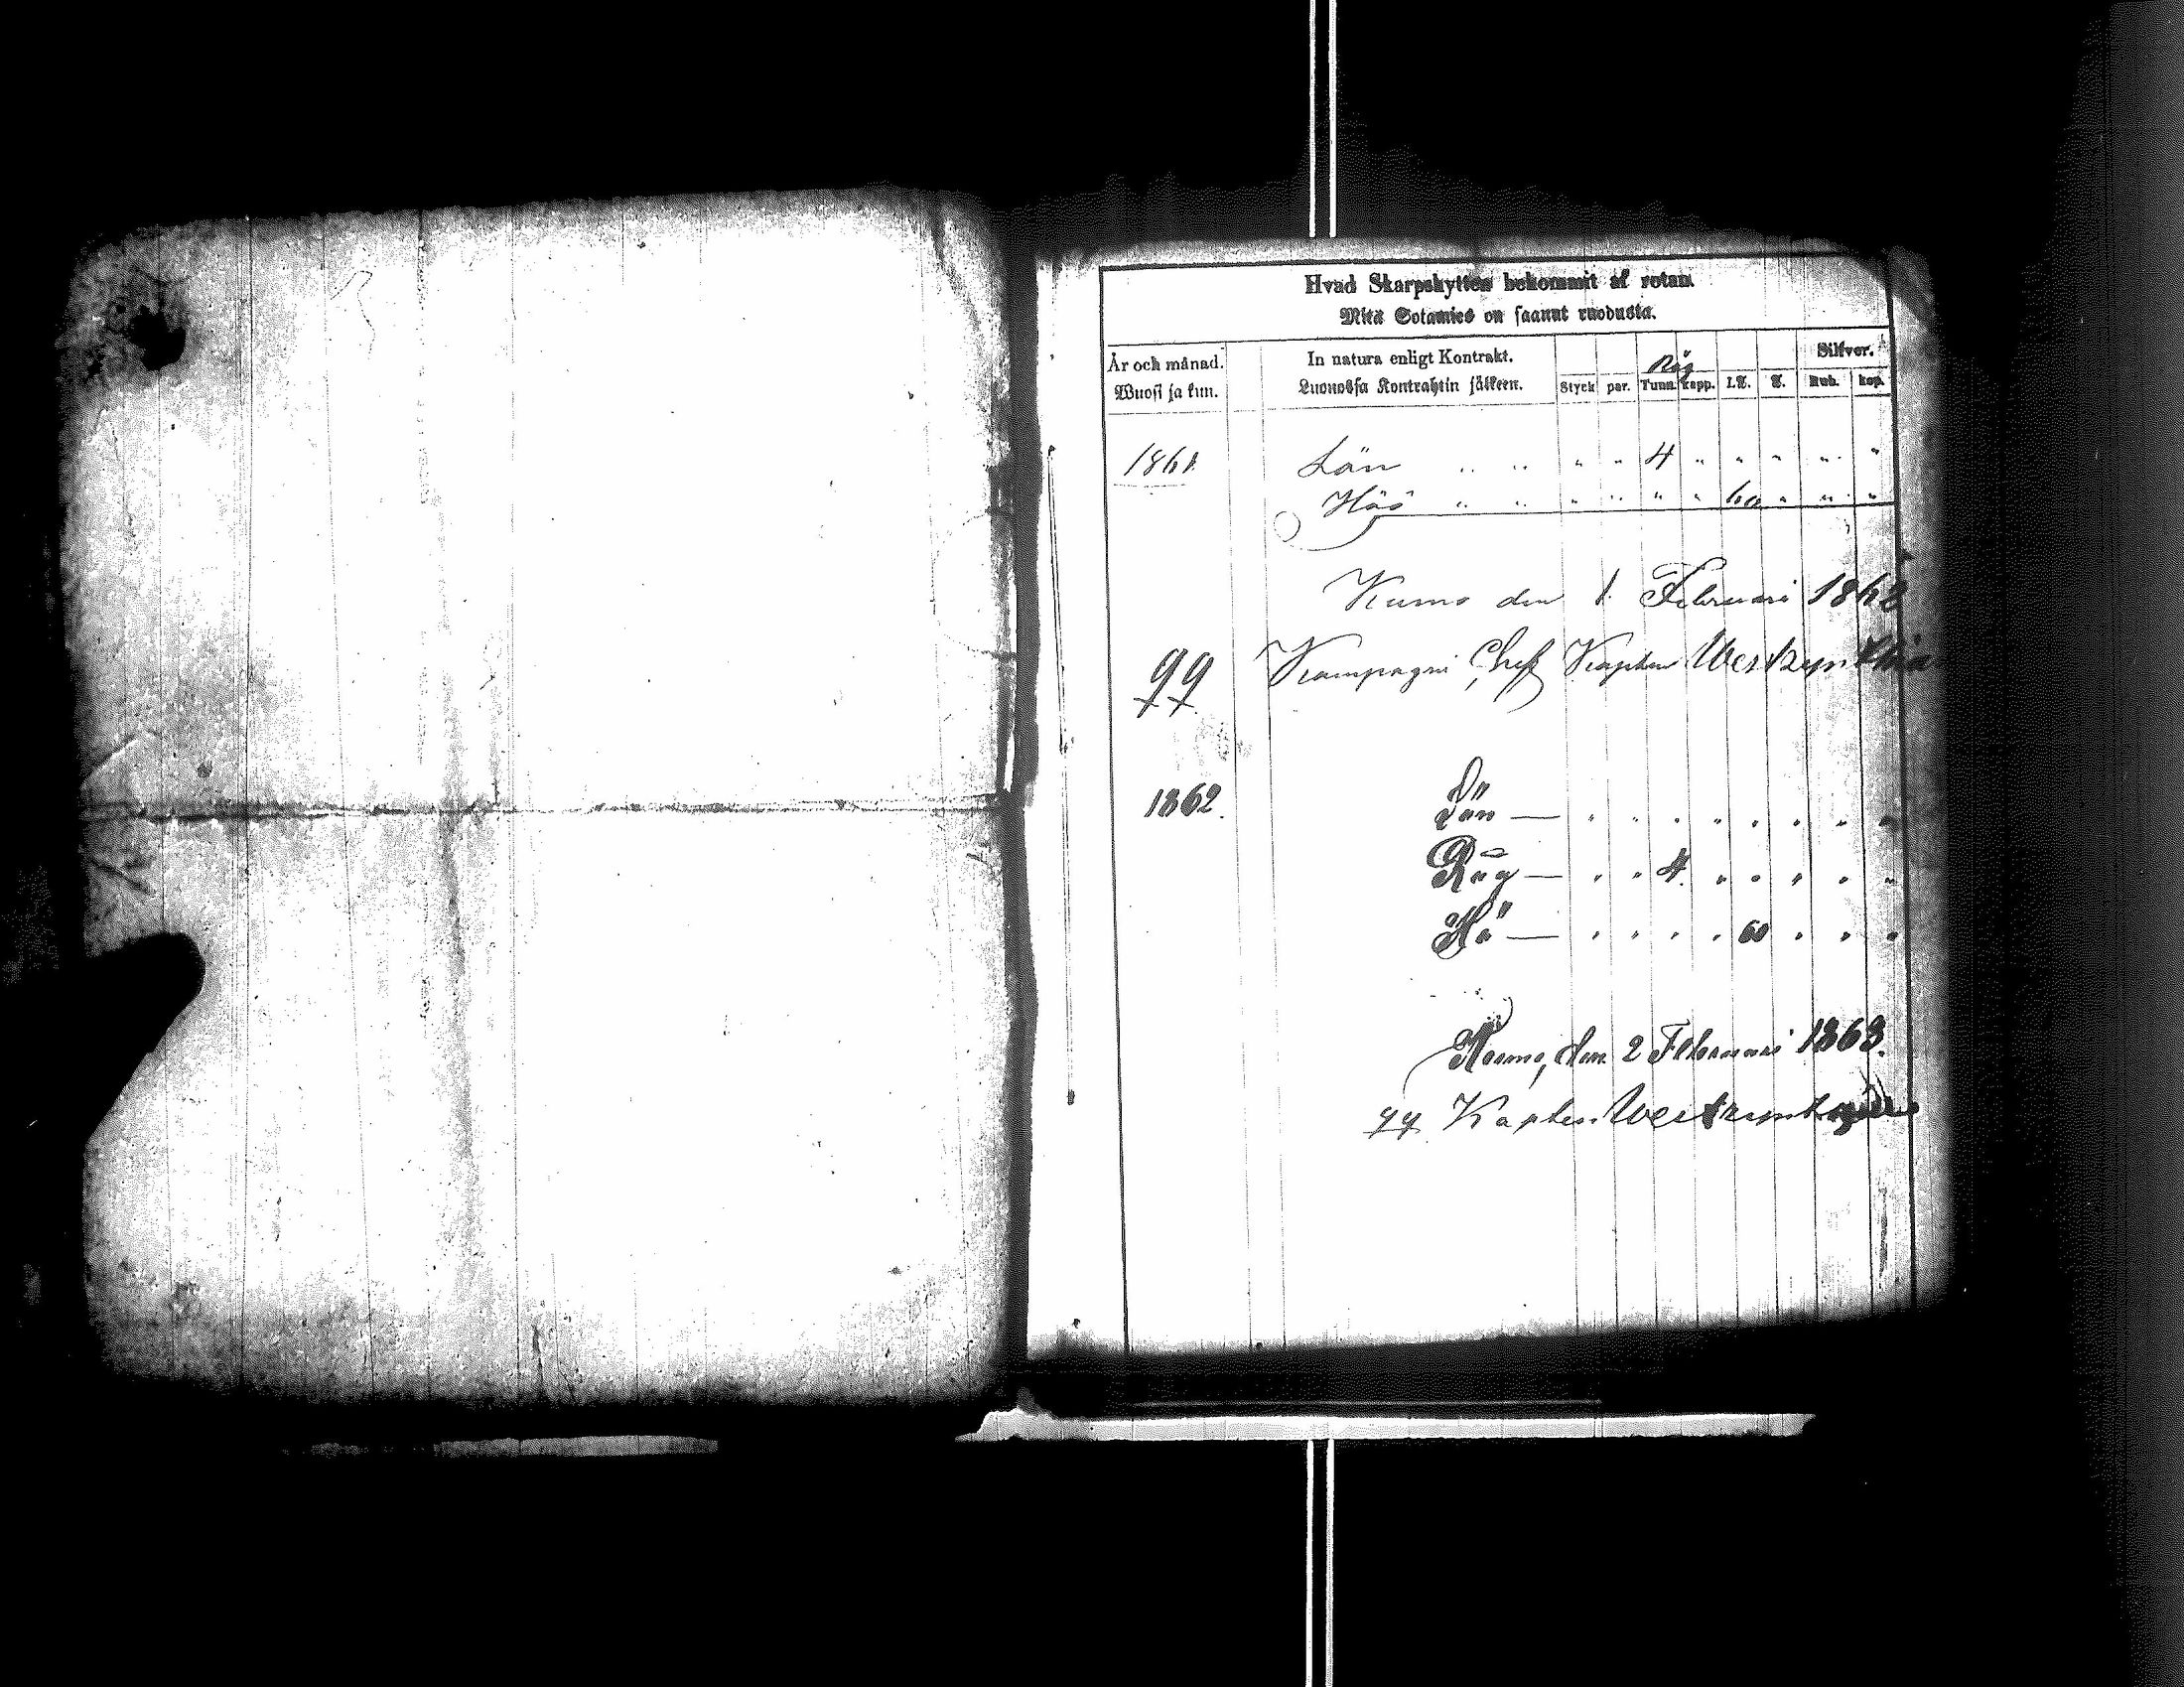 Hvad Skarpskytten bekommit af rotan.
Mitä Sotamies on saanut ruodusta.
År och månad. In natura enligt Kontrakt. Råg Silfver.
Wuosi ja kuu. Luonossa Kontrahtin jälkeen. Styck par. Tunn. kapp. L℔. ℔. Rub. kop.
1861 Lön " " " " 4 " " " " "
Hö " " " " " " 60 " " "
Kumo den 1. Februari 1862
99 Kompagni Chef Kapten
1862. Lön — " " " " " " " "
Råg — " " 4. " " " " "
Hö — " " " " 60 " " "
Kumo, den 2 Februari 1863.
99 Kapten